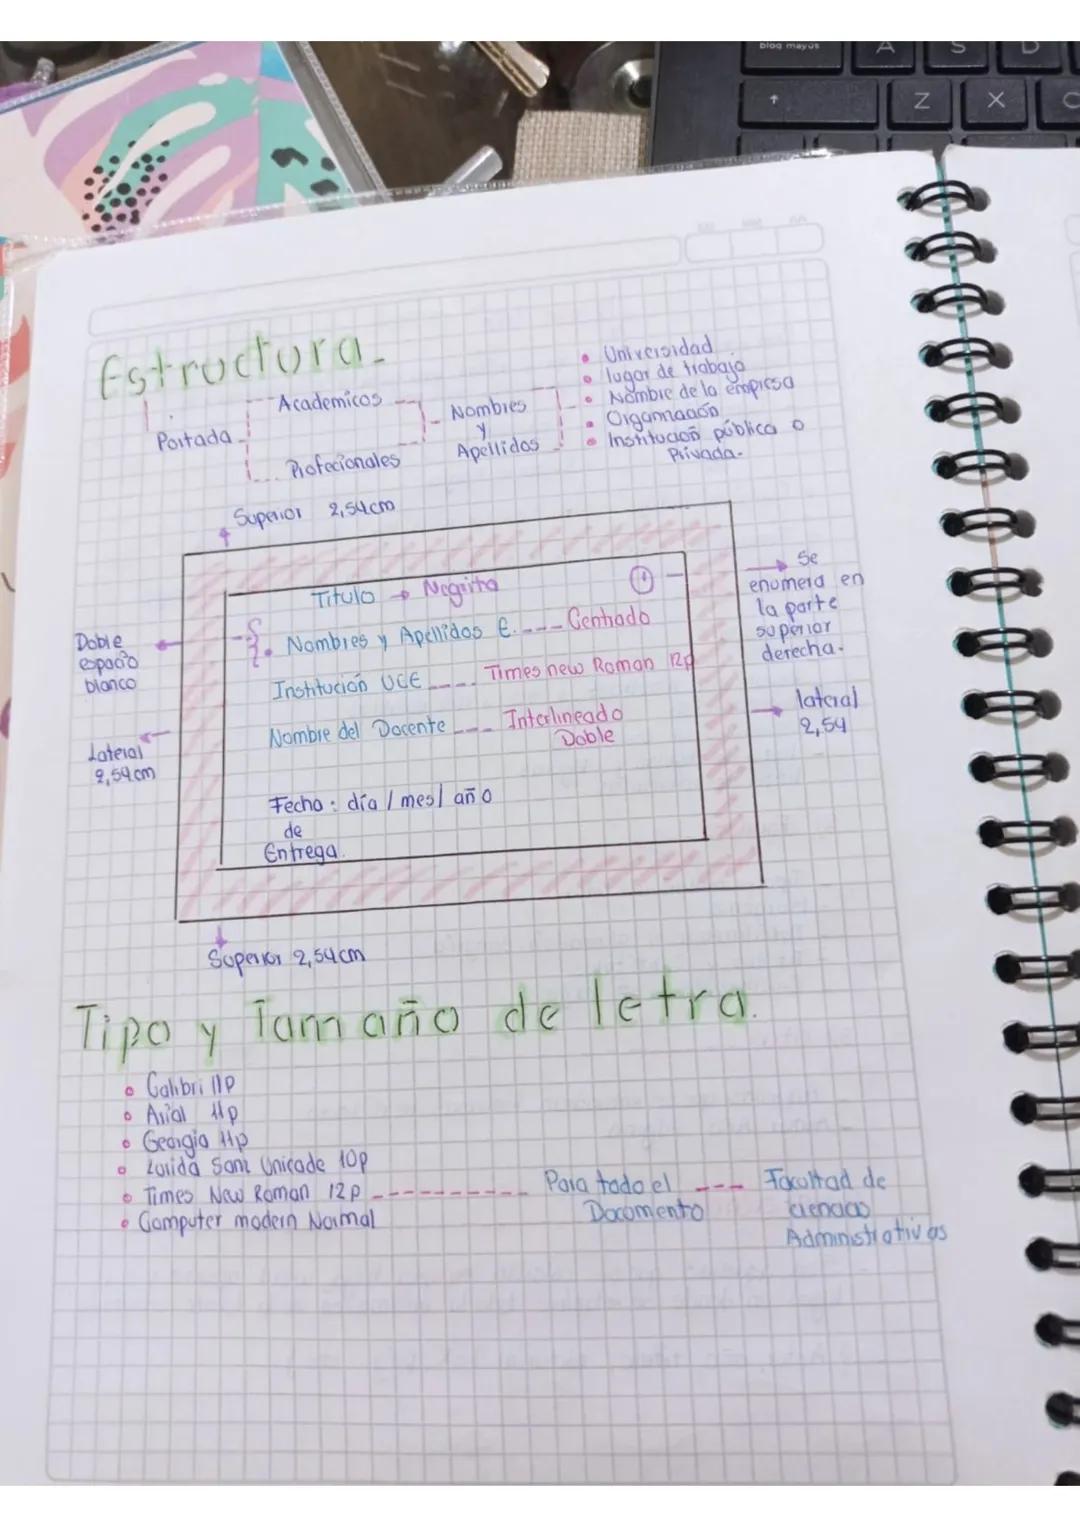 blog mayús
A
S
D
Z
X
C
Estructura.
Portada
Academicos
Profecionales
Nombres
y
Apellidos
• Universidad
• lugar de trabajo
• Nombre de la empresa
• Organización
• Institución pública o
Privada.
Superior 2,54cm
Titulo → Negrita
1
Nombres y Apellidos E. ---- Centrado
Institución UCE ---- Times new Roman 12p
Nombre del Docente --- Interlineado
Doble
Fecha : día / mes / año
de
Entrega.
Doble
espacio
blanco
Lateral
2,54 cm
Se
enumera en
la parte
superior
derecha.
lateral
2,54
Superior 2,54cm
Tipo y Tamaño de letra.
• Calibri 11p
• Arial 11p
• Georgia 11p
• Lucida Sans Unicade 10p
• Times New Roman 12p ---------- Para todo el --- Facultad de
Documento ciencias
Administrativas
• Computer modern Normal